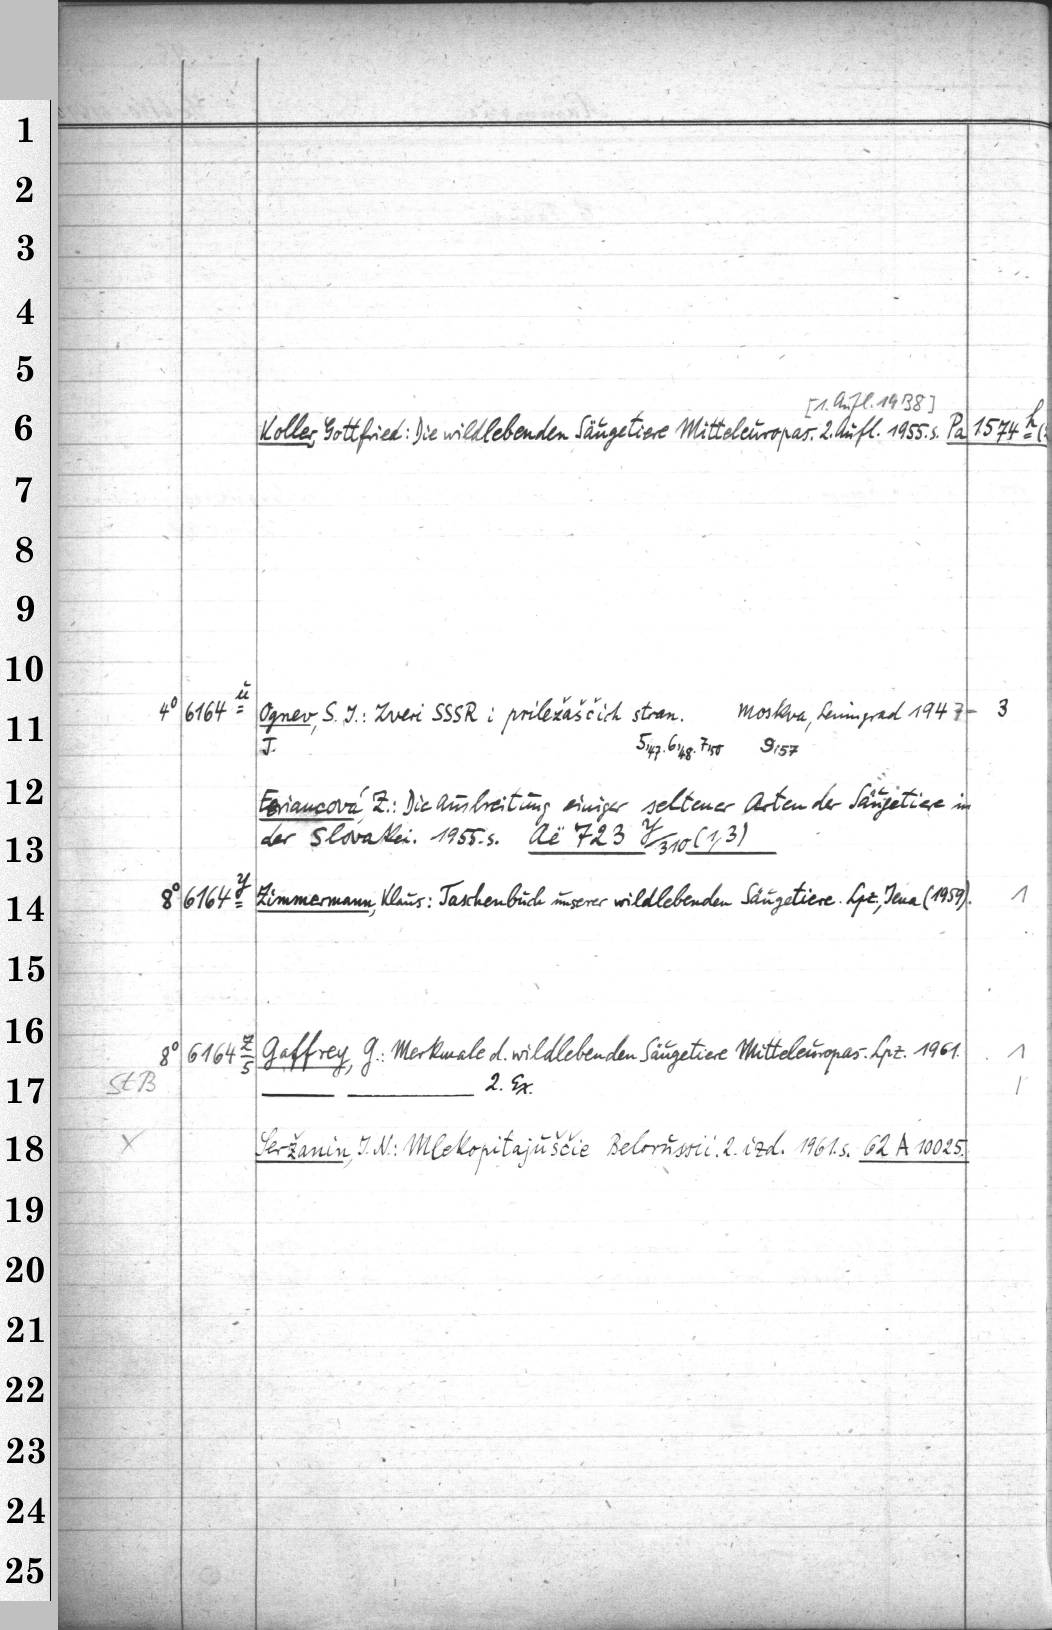 1
2
3
4
5
[1. Aufl. 1938]
6 Koller, Gottfried: Die wildlebenden Säugetiere Mitteleuropas. 2. Aufl. 1955. s. Pa 1574 h
7
8
9
10
11 4° 6164 ü Ognev, S. I.: Zveri SSSR i priležaščich stran. Moskva, Leningrad 1947- 3
5,47. 6,48. 7,50 9,57
12 Feriancová, Z.: Die Ausbreitung einiger seltener Arten der Säugetiere in
13 der Slovakei. 1955. s. Aë 723 y/310 (1,3)
14 8° 6164 y Zimmermann, Klaus: Taschenbuch unserer wildlebenden Säugetiere. Lpz., Jena (1959). 1
15
16 8° 6164 z/5 Gaffrey, G.: Merkmale d. wildlebenden Säugetiere Mitteleuropas. Lpz. 1961. 1
17 StB 2. Ex. 1
18 x Seržanin, I. N.: Mlekopitajuščie Belorussii. 2. izd. 1961. s. 62 A 10025.
19
20
21
22
23
24
25